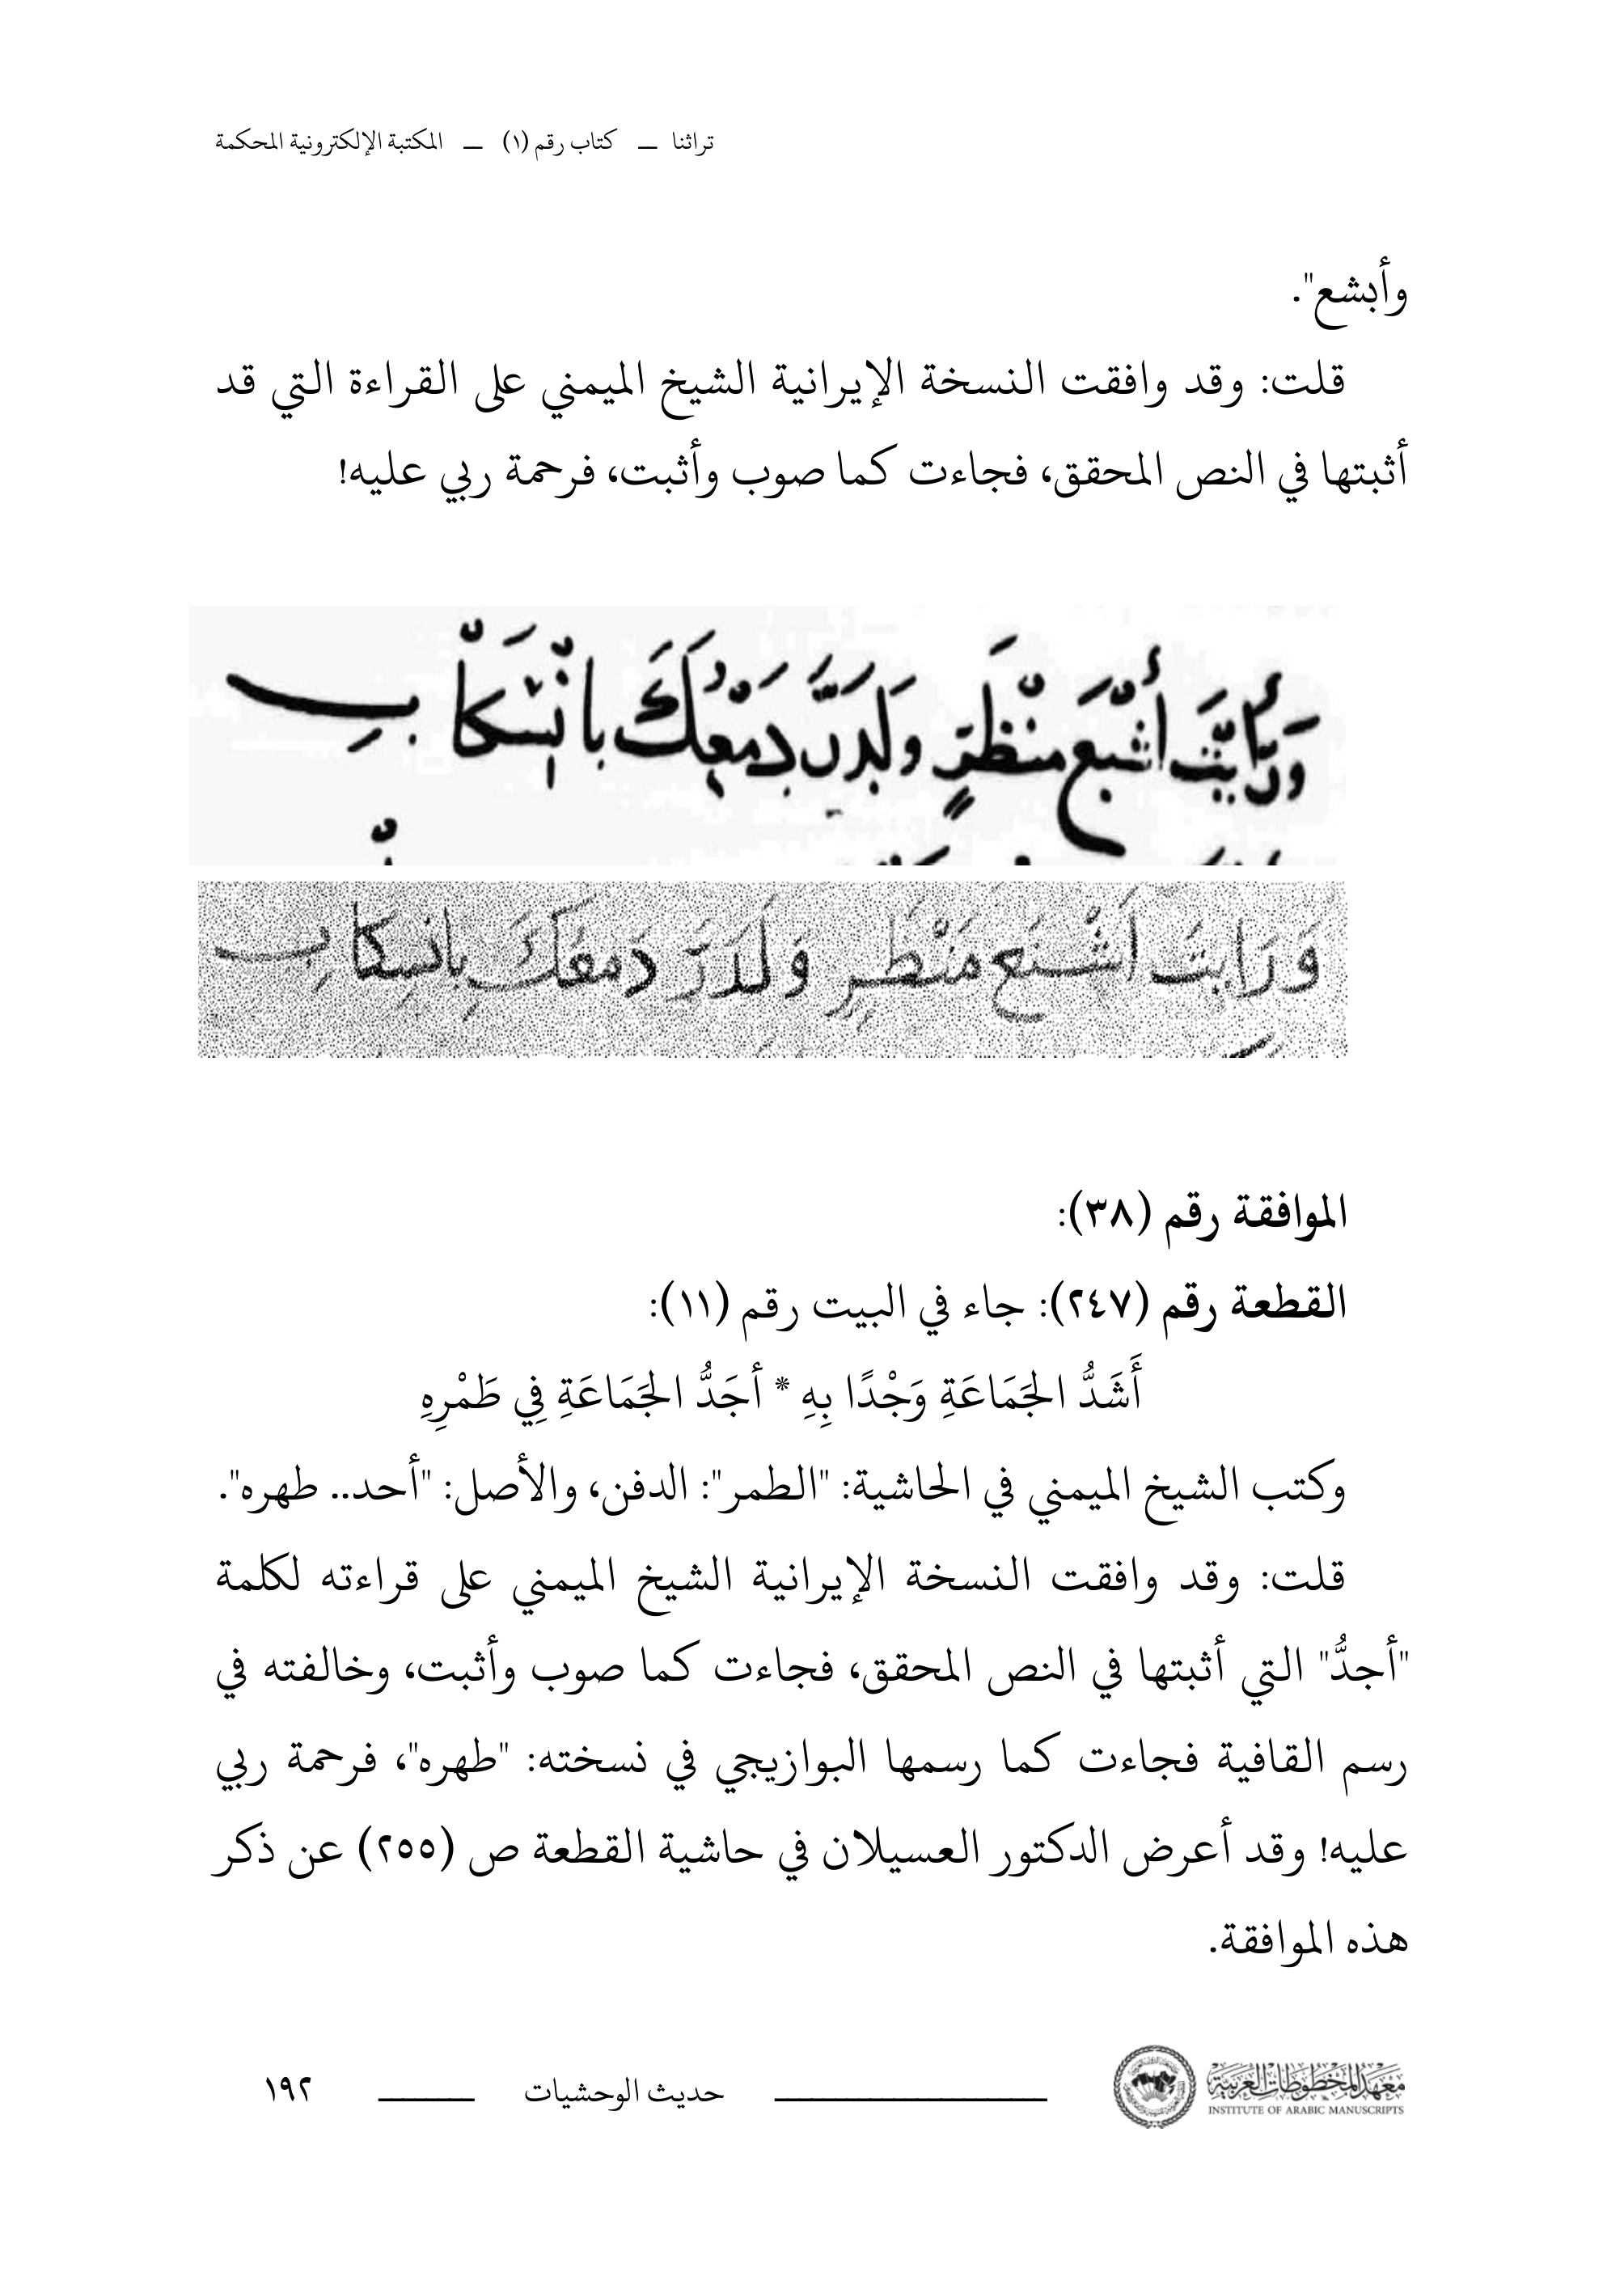 تراثنا — كتاب رقم (١) — المكتبة الإلكترونية المحكمة
وأبشع".
قلت: وقد وافقت النسخة الإيرانية الشيخ الميمني على القراءة التي قد
أثبتها في النص المحقق، فجاءت كما صوب وأثبت، فرحمة ربي عليه!
منْظَرٍ ولدرَّ دمعك بانسكاب
وَرَايت اشْنَع مَنْظَرٍ وَلَدَرَّ دَمعُكَ بانسِكابِ
الموافقة رقم (٣٨):
القطعة رقم (٢٤٧): جاء في البيت رقم (١١):
أَشَدُّ الجَمَاعَةِ وَجْدًا بِهِ * أجَدُّ الجَمَاعَةِ فِي طَمْرِهِ
وكتب الشيخ الميمني في الحاشية: "الطمر": الدفن، والأصل: "أحد.. طهره".
قلت: وقد وافقت النسخة الإيرانية الشيخ الميمني على قراءته لكلمة
"أجدُّ" التي أثبتها في النص المحقق، فجاءت كما صوب وأثبت، وخالفته في
رسم القافية فجاءت كما رسمها البوازيجي في نسخته: "طهره"، فرحمة ربي
عليه! وقد أعرض الدكتور العسيلان في حاشية القطعة ص (٢٥٥) عن ذكر
هذه الموافقة.
معهد المخطوطات العربية
INSTITUTE OF ARABIC MANUSCRIPTS
حديث الوحشيات
١٩٢